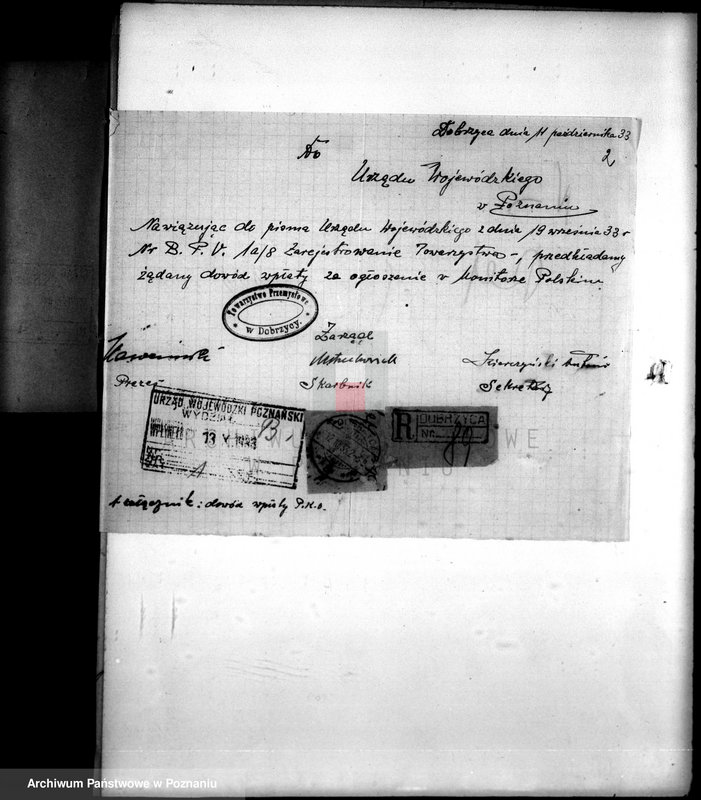 Dobrzyca dnia 11 października 33
2
Do
Urzędu Wojewódzkiego
w Poznaniu
Nawiązując do pisma Urzędu Wojewódzkiego z dnia 19 września 33 r
Nr B. P. V. 1a/8 Zarejestrowanie Towarzystwa -, przedkładamy
żądany dowód wpłaty za ogłoszenie w Monitorze Polskim
Towarzystwo Przemysłowe
w Dobrzycy.
Zarząd
Prezes
Skarbnik
Sekretarz
URZĄD WOJEWÓDZKI POZNAŃSKI
WYDZIAŁ
B
13 X. 1933
1
R
DOBRZYCA
Nr. 89
1 załącznik: dowód wpłaty P.K.O.
Archiwum Państwowe w Poznaniu